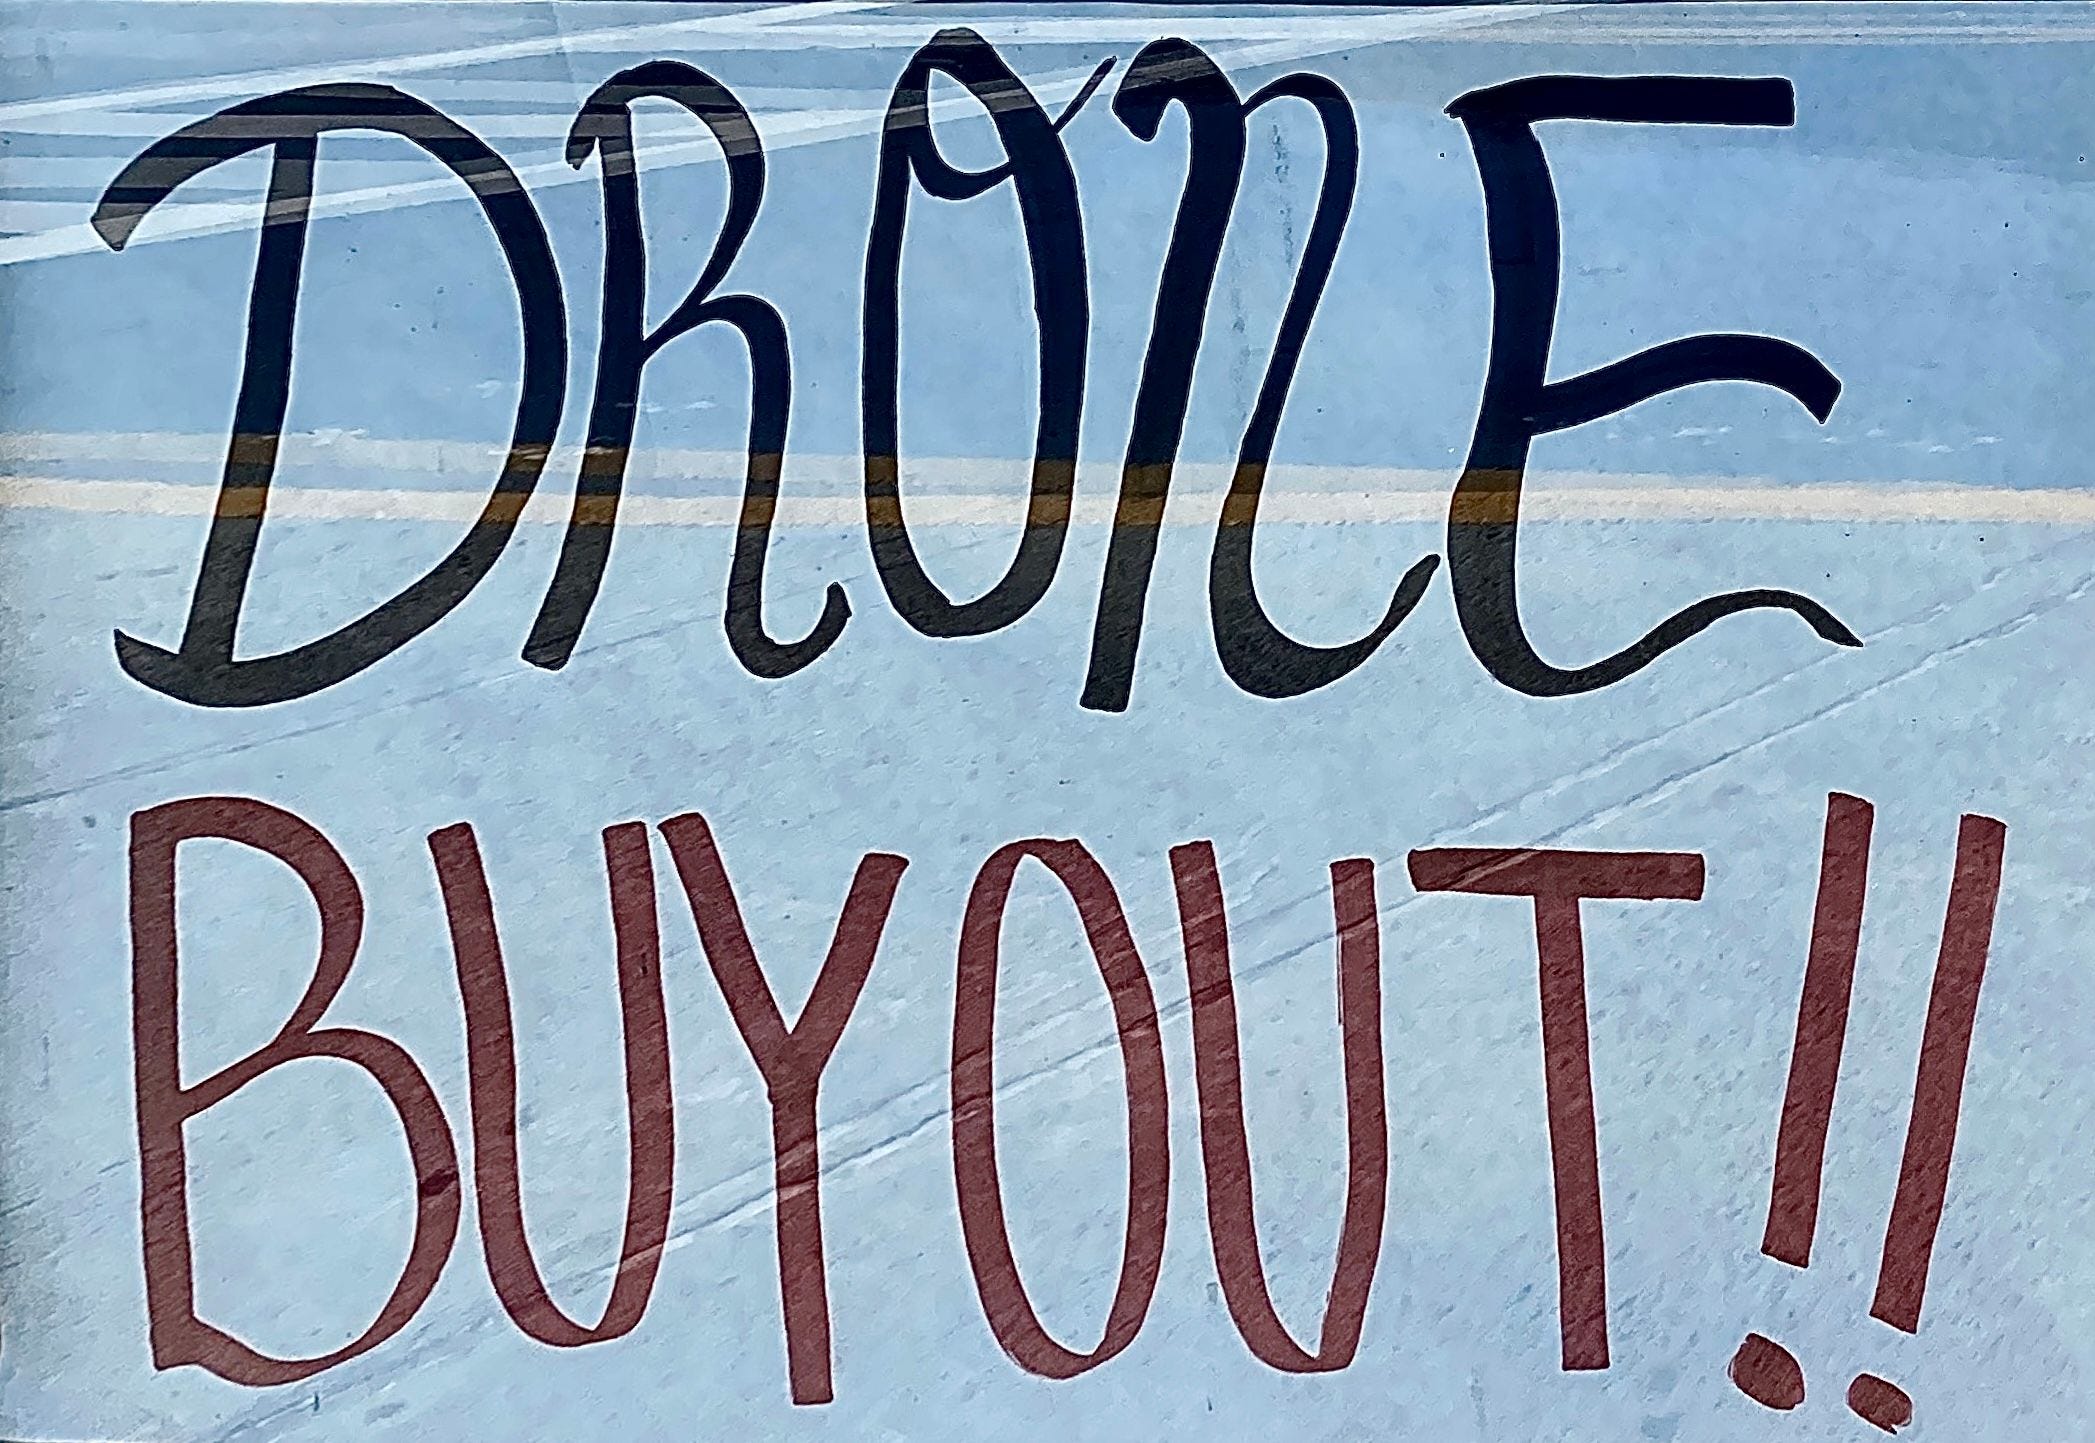 DRONE
BUYOUT!!